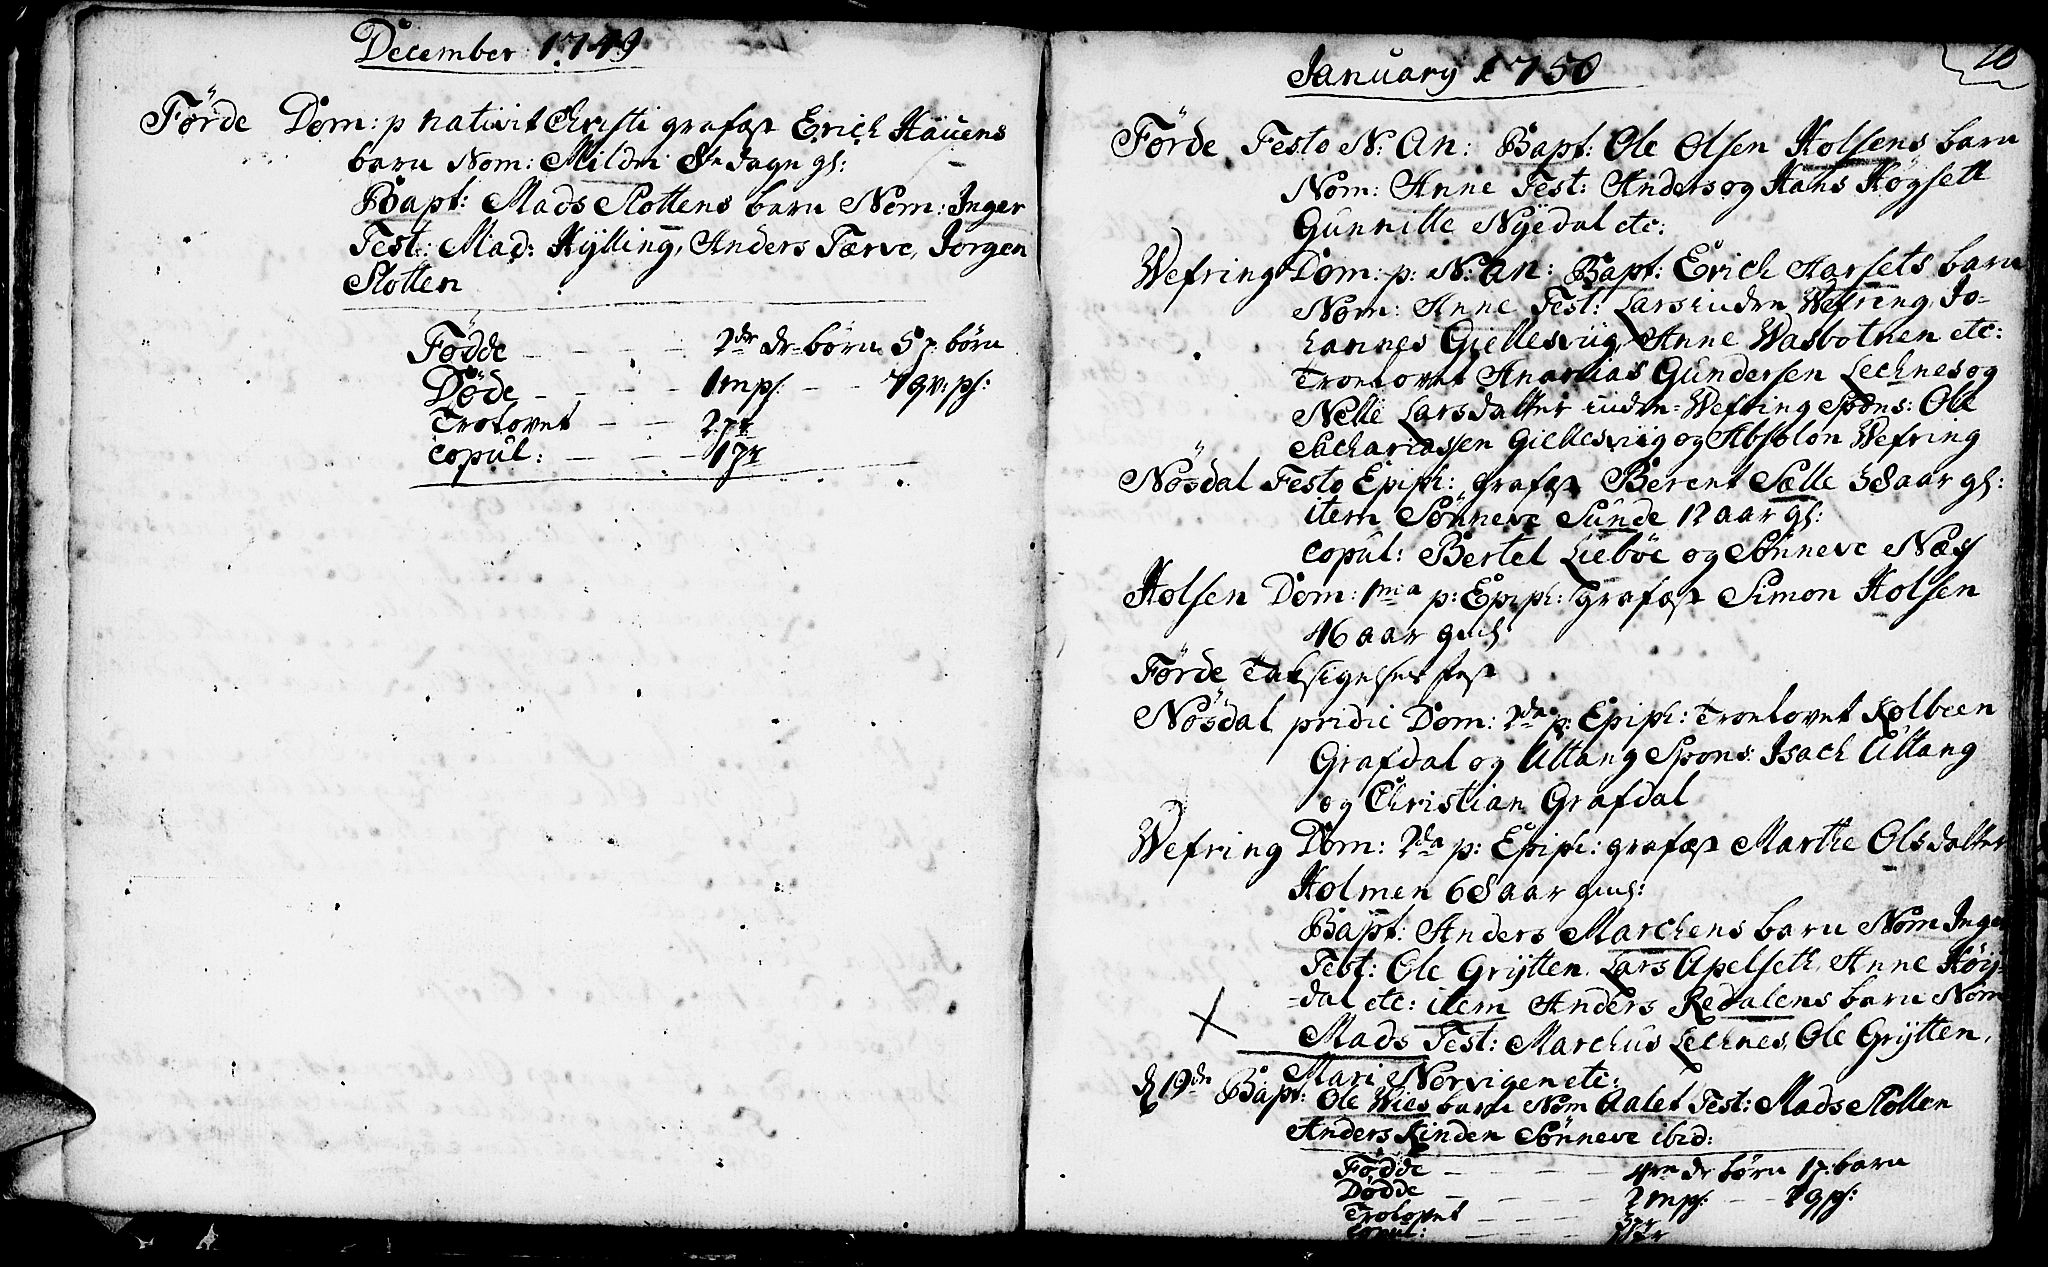 December 1749
Förde Dom: p nativit Christi grafæst Erich Hauens
barn Nom: Mildri 8te dage gl:
Bapt: Mads Slottens barn Nom: Inger
Test: Mad: Hÿlling, Anders Farve, Jorgen
Slotten
Födde - - - - 2de dr börn 5 p börn
Döde - - - - 1 mps: - - 7 qv: ps:
Trolovet - - 2 pr
Copul: - - - - 1 pr
10
January 1750
Förde Festo N: An: Bapt: Ole Olsen Holsens barn
Nom: Anne Test: Anders og Hans Högsett
Gunnille Nÿedal etc:
Wefring Dom: p: N: An: Bapt: Erich Harsets barn
Nom: Anne Test: Lars indre Wefring, Jo-
hannes Giellesviig, Anne Wasbotnen etc:
Trolovet Ananias Gundersen Lechnes og
Nelle Larsdatter indre Wefring Spons: Ole
Sachariassen Giellesviig og Absolon Wefring
Nösdal Festo Epiph: grafæst Berent Sælle 38 aar gl:
item Sönneve Sunde 12 aar gl:
Copul: Bertel Lieböe og Sönneve Næss
Holsen Dom: 1ma p: Epiph: grafæst Simon Holsen
46 aar gml
Förde Taksigelses fest
Nösdal pridie Dom: 2da p: Epiph: Trolovet Kolbeen
Grafdal og Ultang Spons: Isach Ultang
og Christian Grafdal
Wefring Dom: 2da p: Epiph: grafæst Marthe Olsdatter
Holmen 68 aar gml:
Bapt: Anders Marchens barn Nom Inger
Test: Ole Grÿtten, Lars Apelseth, Anne Höÿ-
dal etc: item Anders Redalens barn Nom
Mads Test: Marchus Lechnes, Ole Grÿtten,
Mari Norvigen etc:
d 19de Bapt: Ole Wies barn Nom Aalet Test: Mads Slotten
Anders Hinden Sönneve ibid:
Födde - - - - 4re dr börn 1 p: barn
Dödde - - - - 2 mps: - - 2 qps:
Trolovet - - - 3 pr
Copul: - - - 1 pr